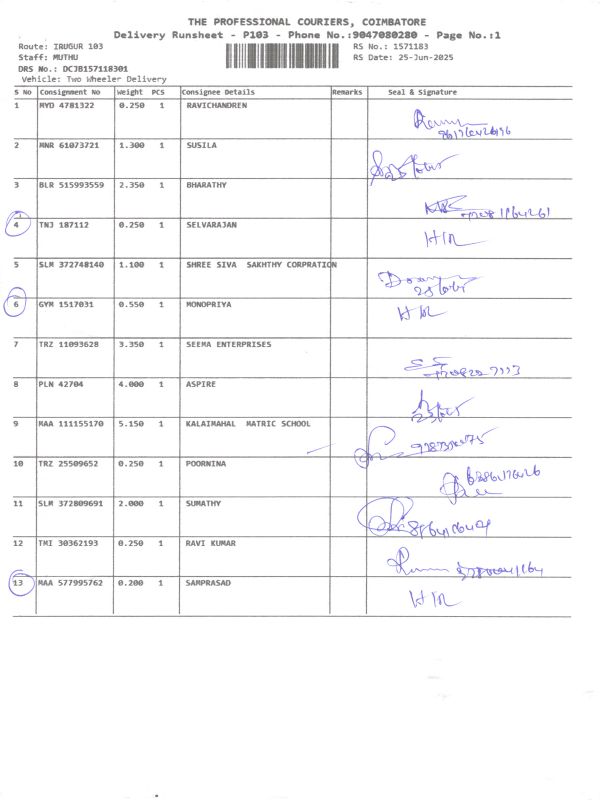 THE PROFESSIONAL COURIERS, COIMBATORE
Delivery Runsheet - P103 - Phone No.:9047080280 - Page No.:1
Route: IRUGUR 103 RS No.: 1571183
Staff: MUTHU RS Date: 25-Jun-2025
DRS No.: DCJB157118301
Vehicle: Two Wheeler Delivery
S No Consignment No Weight PCS Consignee Details Remarks Seal & Signature
1 MYD 4781322 0.250 1 RAVICHANDREN
2 MNR 61073721 1.300 1 SUSILA
3 BLR 515993559 2.350 1 BHARATHY
4 TNJ 187112 0.250 1 SELVARAJAN
5 SLM 372748140 1.100 1 SHREE SIVA SAKHTHY CORPRATION
6 GYM 1517031 0.550 1 MONOPRIYA
7 TRZ 11093628 3.350 1 SEEMA ENTERPRISES
8 PLN 42704 4.000 1 ASPIRE
9 MAA 111155170 5.150 1 KALAIMAHAL MATRIC SCHOOL
10 TRZ 25509652 0.250 1 POORNINA
11 SLM 372809691 2.000 1 SUMATHY
12 TMI 30362193 0.250 1 RAVI KUMAR
13 MAA 577995762 0.200 1 SAMPRASAD